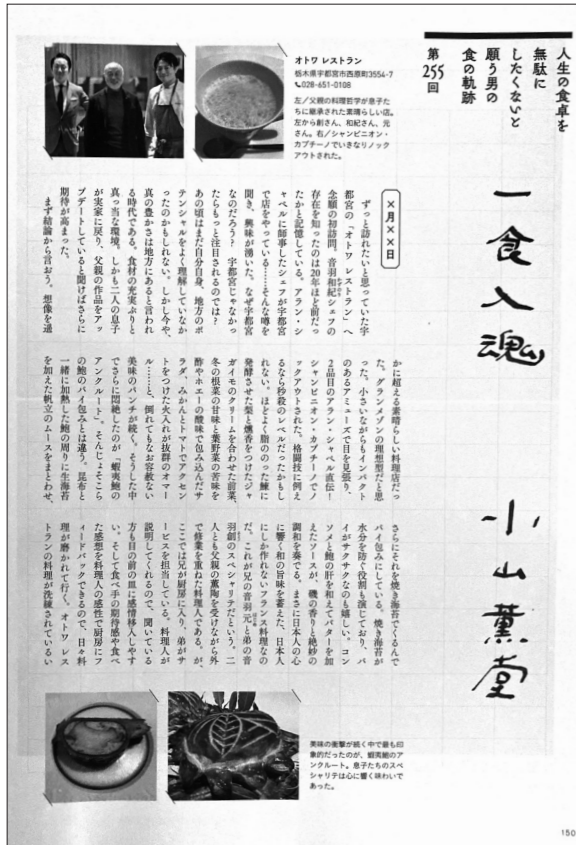 人生の食卓を
無駄に
したくないと
願う男の
食の軌跡
第255回
一食入魂
小山薫堂
オトワ レストラン
栃木県宇都宮市西原町3554-7
028-651-0108
左／父親の料理哲学が息子た
ちに継承された素晴らしい店。
左から創さん、和紀さん、元
さん。右／シャンピニオン・
カプチーノでいきなりノック
アウトされた。
×月××日
ずっと訪れたいと思っていた宇
都宮の「オトワ レストラン」へ
念願の初訪問。音羽和紀シェフの
存在を知ったのは20年ほど前だっ
たかと記憶している。アラン・シ
ャペルに師事したシェフが宇都宮
で店をやっている……そんな噂を
聞き、興味が湧いた。なぜ宇都宮
なのだろう？ 宇都宮じゃなかっ
たらもっと注目されるのでは？
あの頃はまだ自分自身、地方のポ
テンシャルをよく理解していなか
ったのかもしれない。しかし今や、
真の豊かさは地方にあると言われ
る時代である。食材の充実ぶりと
真っ当な環境。しかも二人の息子
が実家に戻り、父親の作品をアッ
プデートしていると聞けばさらに
期待が高まった。
まず結論から言おう。想像を遥
かに超える素晴らしい料理店だっ
た。グランメゾンの理想型だと思
った。小さいながらもインパクト
のあるアミューズで目を見張り、
2品目のアラン・シャペル直伝！
シャンピニオン・カプチーノでノ
ックアウトされた。格闘技に例え
るなら秒殺のレベルだったかもし
れない。ほどよく脂ののった鰊に
発酵させた梨と燻香をつけたジャ
ガイモのクリームを合わせた前菜、
冬の根菜の甘味と葉野菜の苦味を
酢やホエーの酸味で包み込んだサ
ラダ、みかんとトマトでアクセン
トをつけた火入れが抜群のオマー
ル……と、倒れてもなお容赦ない
美味のパンチが続く。そうした中
でさらに悶絶したのが「蝦夷鮑の
アンクルート」。そんじょそこら
の鮑のパイ包みとは違う。昆布と
一緒に加熱した鮑の周りに生海苔
を加えた帆立のムースをまとわせ、
さらにそれを焼き海苔でくるんで
パイ包みにしている。焼き海苔が
水分を防ぐ役割も演じており、パ
イがサクサクなのも嬉しい。コン
ソメと鮑の肝を和えてバターを加
えたソースが、磯の香りと絶妙の
調和を奏でる。まさに日本人の心
に響く和の旨味を蓄えた、日本人
にしか作れないフランス料理なの
だ。これが兄の音羽元と弟の音
羽創のスペシャリテだという。二
人とも父親の薫陶を受けながら外
で修業を重ねた料理人である。が、
ここでは兄が厨房に入り、弟がサ
ービスを担当している。料理人が
説明してくれるので、聞いている
方も目の前の皿に感情移入しやす
い。そして食べ手の期待感や食べ
た感想を料理人の感性で厨房にフ
ィードバックできるので、日々料
理が磨かれて行く。オトワ レス
トランの料理が洗練されているい
美味の衝撃が続く中で最も印
象的だったのが、蝦夷鮑のア
ンクルート。息子たちのスペ
シャリテは心に響く味わいで
あった。
150